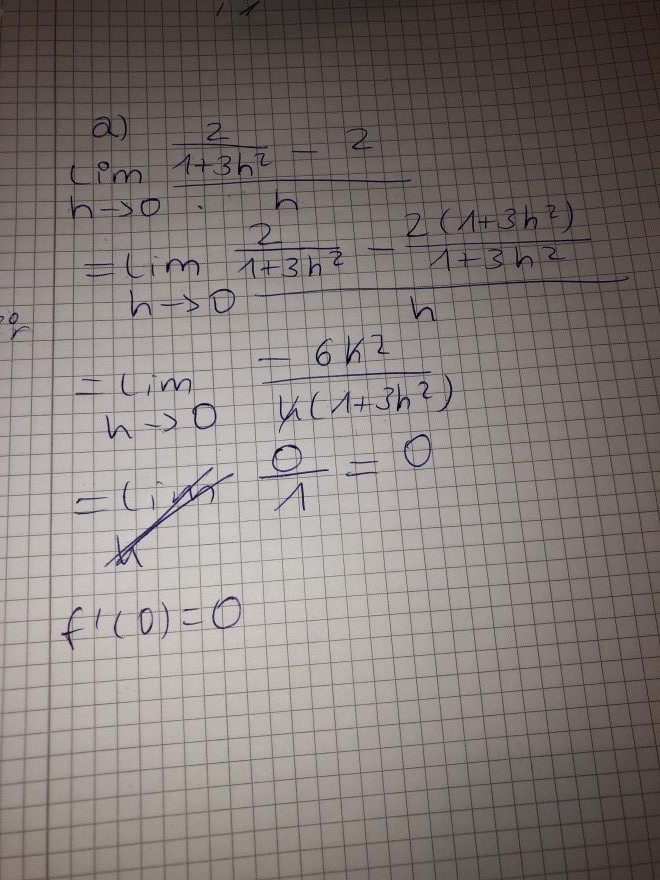 a)
lim h→0 (2/(1+3h²) - 2)/h
= lim h→0 (2/(1+3h²) - 2(1+3h²)/(1+3h²))/h
= lim h→0 -6h²/(h(1+3h²))
= lim h 0/1 = 0
f'(0)=0